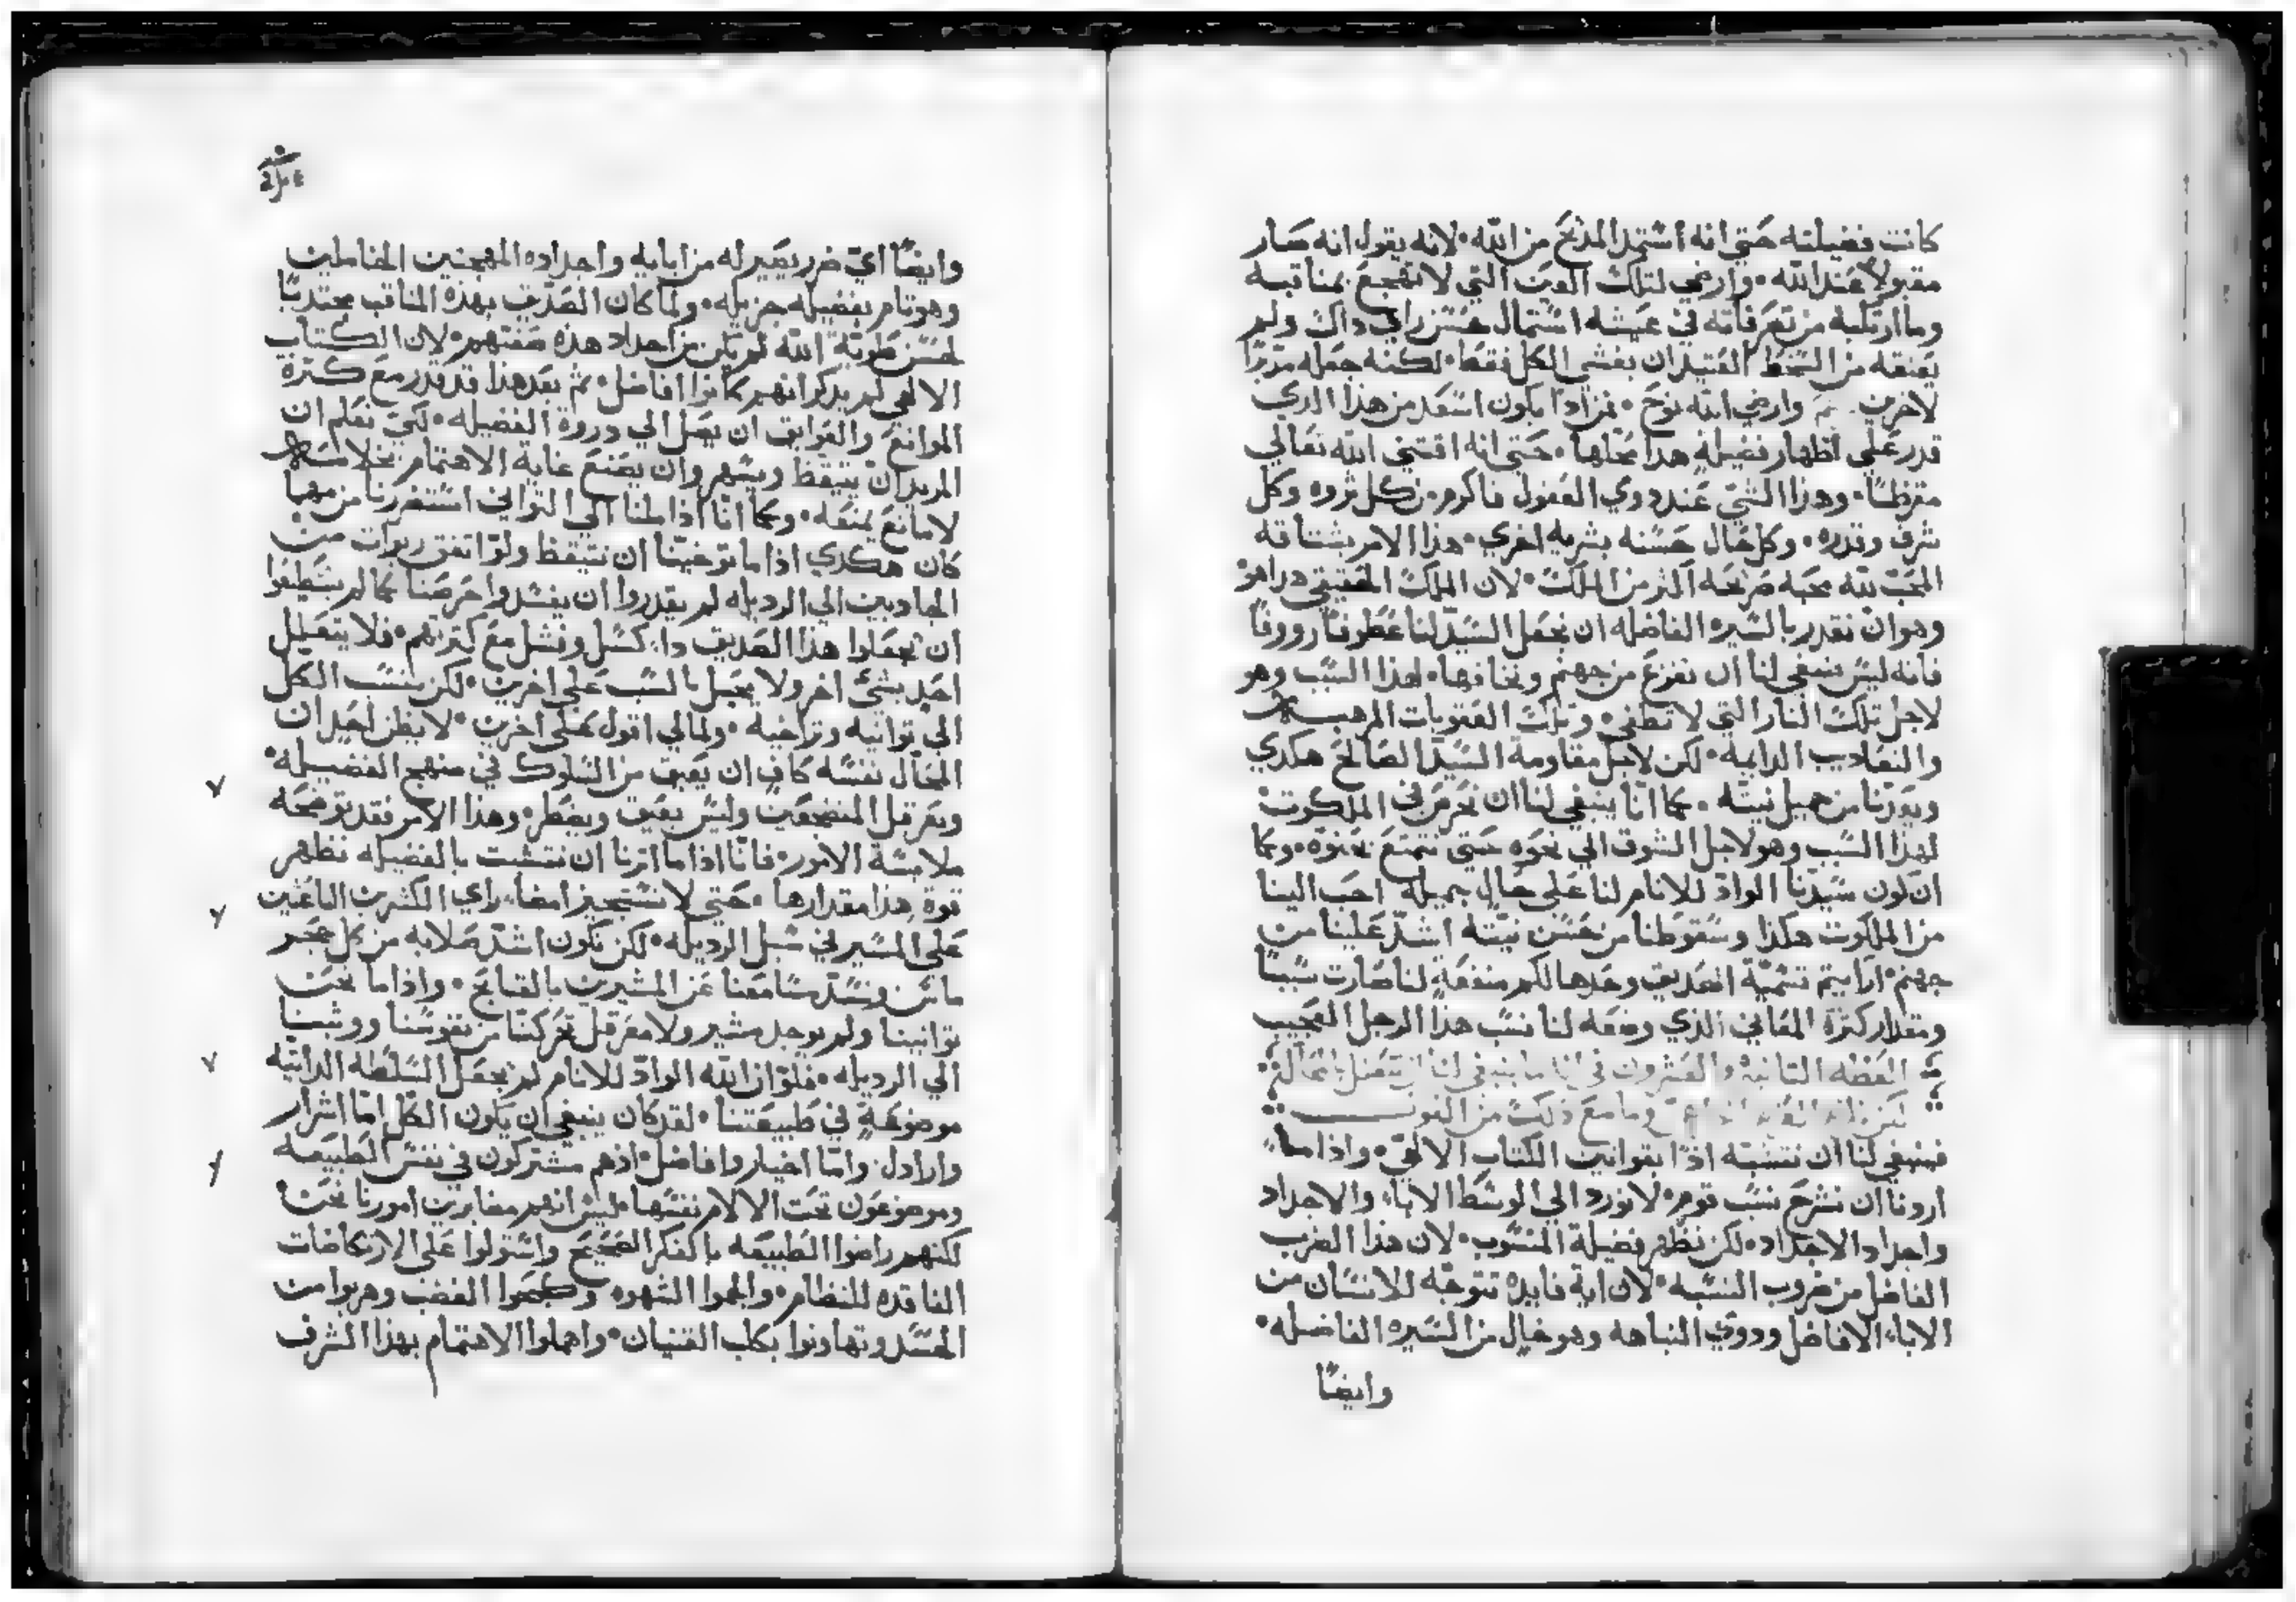 كانت فضيلته حتي انه استمد المدح من الله • لانه يقول انه صار
مقبولاً عند الله • وارضي لتلك العين التي لا تهجع بمناقبه
وما ارتكبه من تصرفاته في عيشه استمال حسن راي داك ولم
يعتقه من السخط العتيد ان يغشى الكل فقط • لكنه جعله مدبرًا
لاخرين وارضي الله نوح • فمن ادا يكون اسعد من هذا الدي
قدر علي اظهار فضيلةٍ هدا محلها • حتي انه اقتني الله تعالي
مقرظًا • وهذا الشي عند دوي العقول فاكرم من كل ثروه وكل
شرف وقدره • وكل حال حسنه بشريه اخري • هذا الامر يشتاقه
المحب لله محبه صريحه اكثر من الملك • لان الملك الحقيقي هدا هو
وهو ان نقدر بالسيره الفاضله ان نجعل السيد لنا عطوفًا رووفًا
فانه ليس ينبغي لنا ان نفزع من جهنم ونخافها • لهذا السبب وهو
لاجل تلك النار التي لا تطفي • وتلك العقوبات المرهبه
والتعاديب الدايمه • لكن لاجل مقاومة السيد الصالح هكدي
وبعدنا من جميل نيته • كما انا ينبغي لنا ان نحرص في الملكوت
لهذا السبب وهو لاجل الشوق الي نحوه حتي نتمتع بحنوّه • وكما
ان كون سيدنا الوادّ للانام لنا علي حالٍ جميله احب الينا
من الملكوت هكذا وسقوطنا من حسن نيته اشدّ علينا من
جهنم • ارايتم تسمية الصديق وحدها لكم منفعةٍ لنا صارت سببًا
ومقدار كثرة المعاني الذي وضعه لنا نسب هذا الرجل العجيب
العظه الثانية والعشرون في انا ما ينبغي لنا ان
وما مع ذلك من القول
فينبغي لنا ان نتشبّه اذًا بقوانين الكتاب الالاهيّ • واذا ما
اردنا ان نشرح نسب قوم • لا نورد الي الوسط الاباء والاجداد
واجداد الاجداد • لكن نظهر فضيلة المنسوب • لان هذا الضرب
الفاضل من ضروب النسبه • لان اية فايدة تتوجه للانسان من
الاباء الافاضل ودوي النباهه وهو خالٍ من السيره الفاضله •
وايضًا
وايضًا ايّ ضرر يصير له من ابايه واجداده المهجنين الخاملين
وهو تام بفضيله جزيله • ولما كان الصديق بهذه المناقب مجتدبًا
لحسن طويّة الله لم يكن من اجداد هذه صفتهم • لان الكتاب
الالاهي لم يدكر انهم كانوا افاضل • ثم بعد هذا قد قدر مع كثرة
الموانع والعوايق ان يصل الي دروة الفضيله • لكي نعلم ان
المريد ان يتيقظ ويسهر وان يصنع غاية الاهتمام بخلاصه
لا مانع يمنعه • وكما انّا اذا ملنا الي التواني استضررنا من مهما
كان هكدي اذا ما توخينا ان نتيقظ ولو اتفق ربوات من
الجادبين الي الرديله لم يقدروا ان يفسدوا حرصنا كما لم يستطيعوا
ان يجعلوا هذا الصديق دا كسل وفشل مع كثرتهم • فلا يتعلل
احد بشئ اخر ولا يحيل بالسبب علي اخرين • لكن ينسب الكل
الي توانيه وتراخيه • ولمالي اقول علي اخرين • لا يظن احد ان
المحال نفسه كافٍ ان يعيق من السلوك في منهج الفضيله •
ويعرقل المنضجعين وليس يعيق ويضطر • وهذا الامر فقد توضحه
ملامسة الامور • فانّا اذا ما اثرنا ان نتشبث بالفضيله نظهر
قوة هذا مقدارها • حتي لا نستجيز امضاء راي الكثيرين الباعثين
علي المسير في سبل الرديله • لكن نكون اشدّ صلابه من كل حجر
ماس ونسدّ مسامعنا عن المشيرين بالقبايح • واذا ما نحن
توانينا ولم يوجد مشير ولا معرقل تحركنا من نفوسنا ووثبنا
الي الرديله • فلو ان الله الوادّ للانام لم يجعل السلطه الداتيه
موضوعةٍ في طبيعتنا • لقد كان ينبغي ان يكون الكل امّا اشرار
وارادل وامّا اخيار وافاضل • اذ هم مشتركون في نفس الطبيعه
وموضوعون تحت الالام نفسها • ليس انهم مغايرين امورنا نحن
لكنهم راضوا الطبيعه بالفكر الصحيح واستولوا على الارتكاضات
الفاقده للنظام • والجموا الشهوه وكبحوا الغضب وهربوا من
الحسد وتهاونوا بكلب القنيان • واهملوا الاهتمام بهذا الشرف